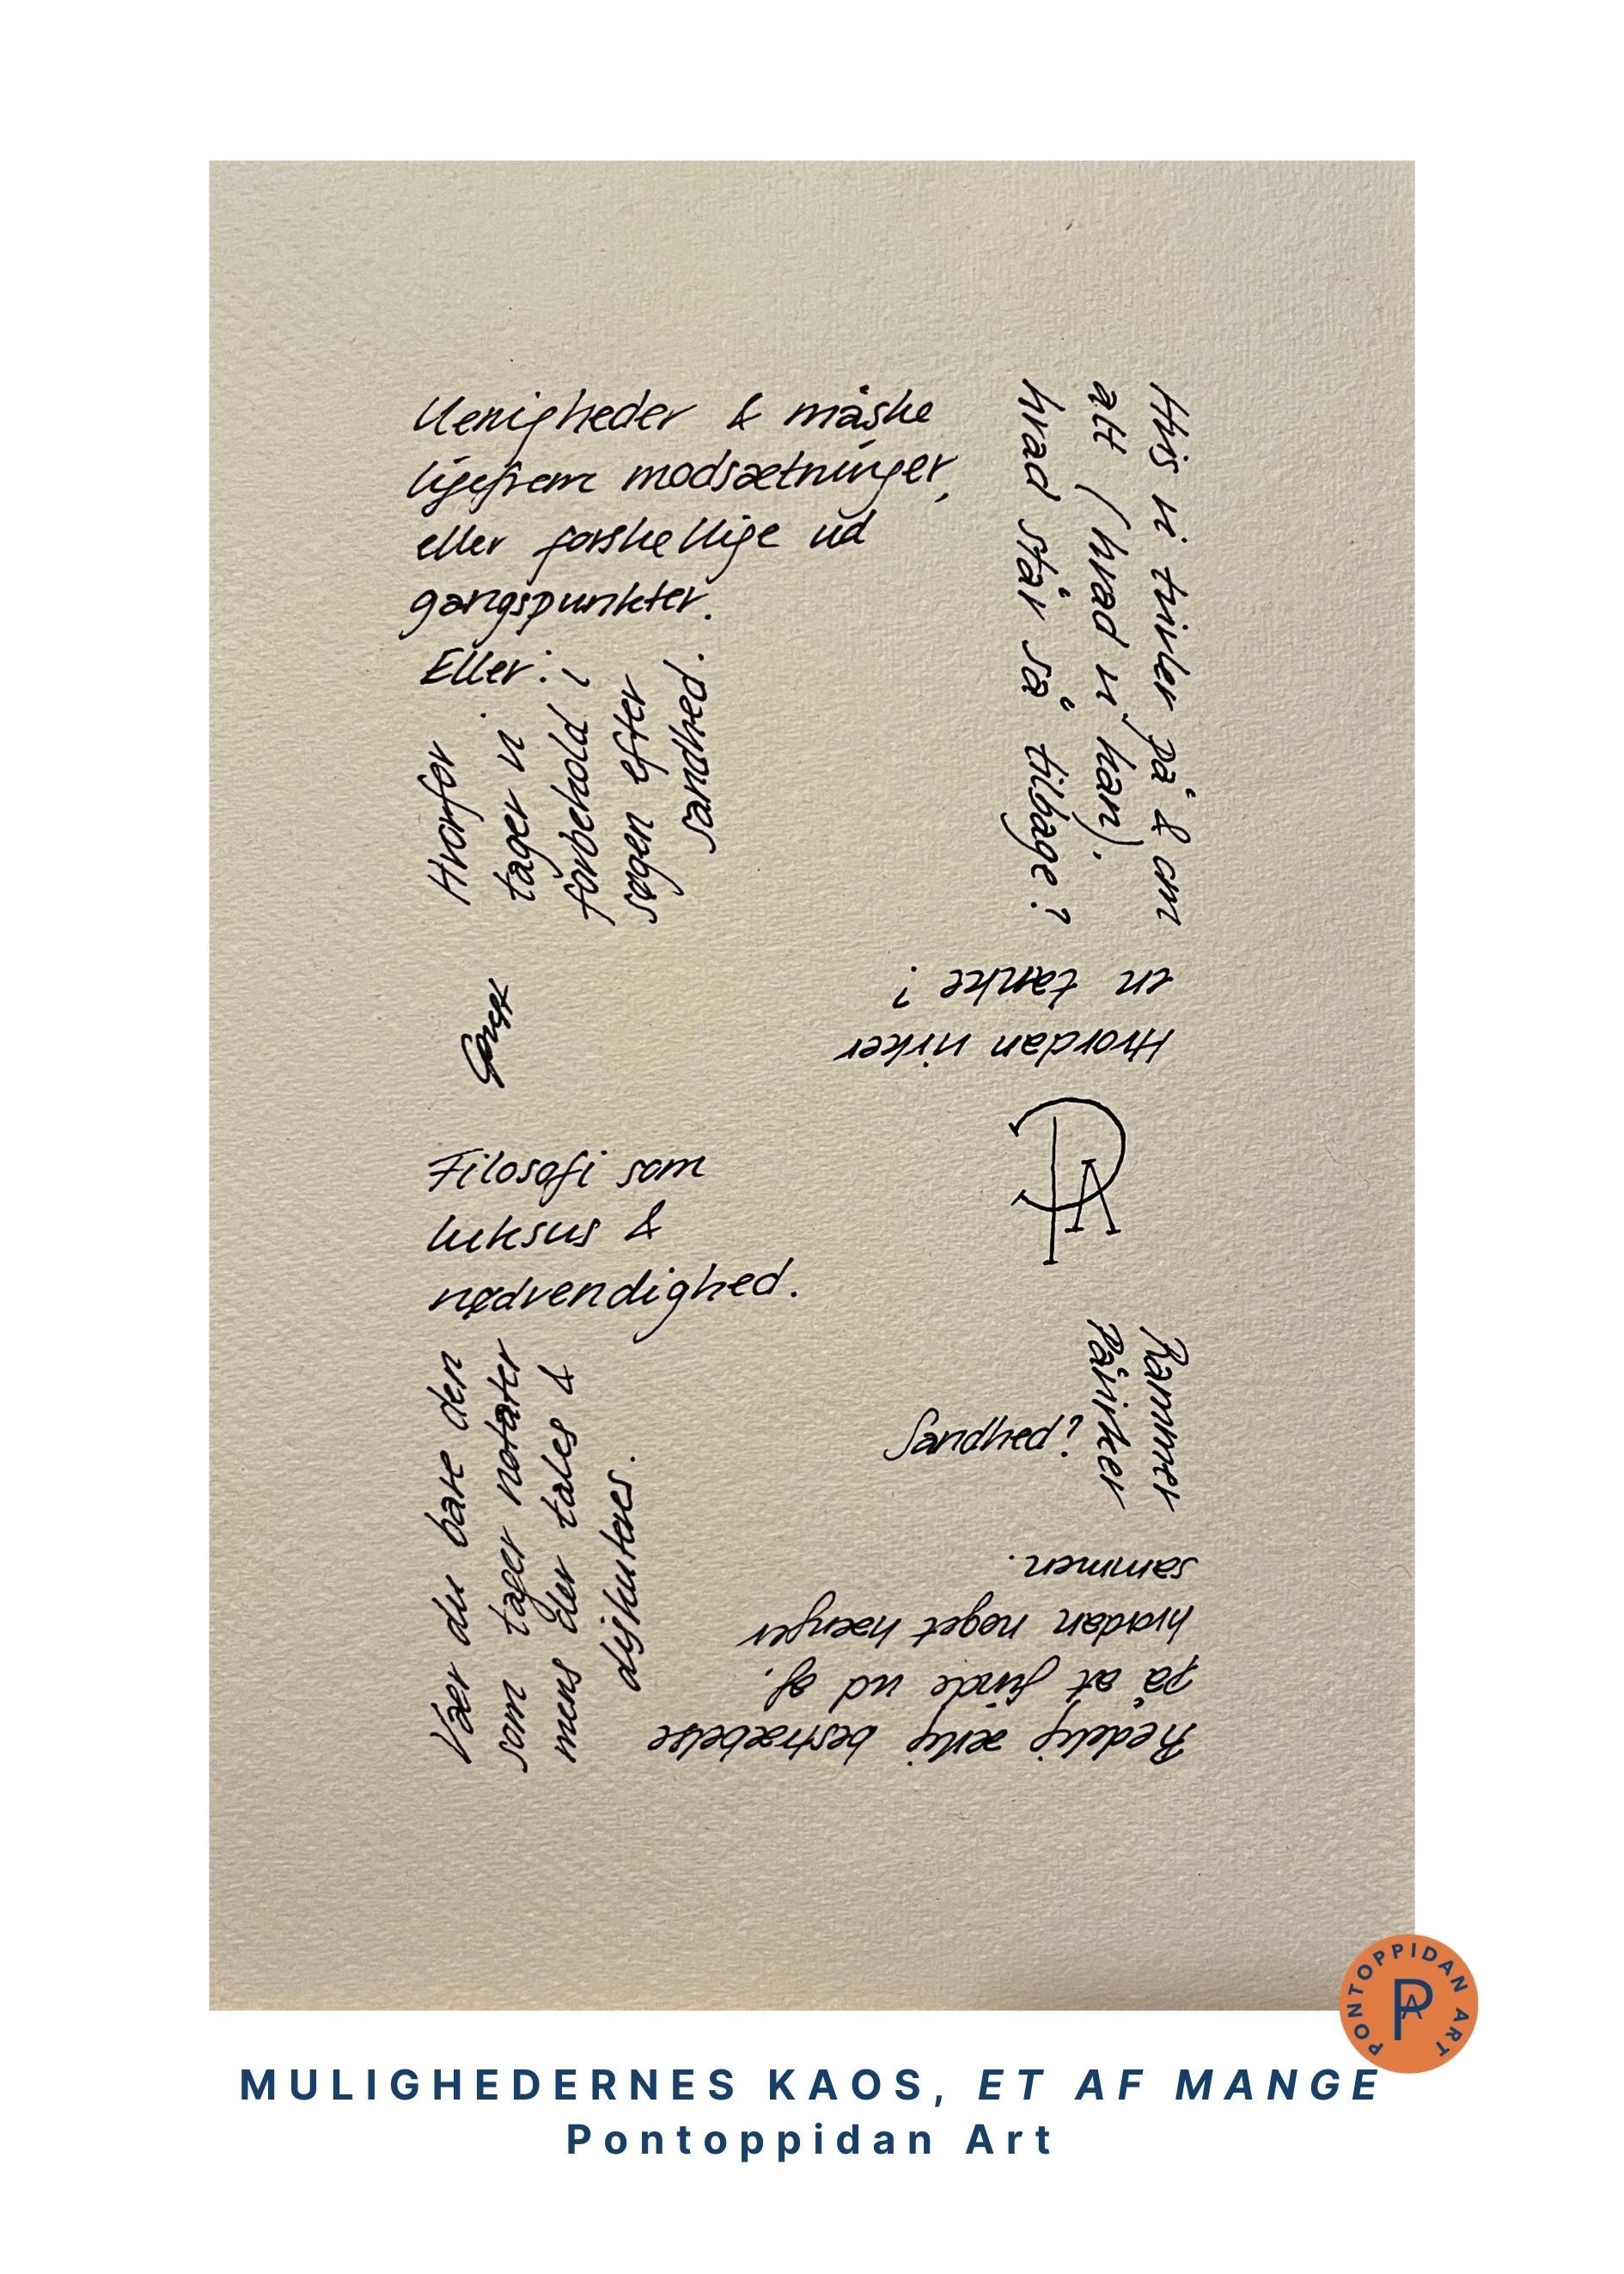 Uenigheder & måske
ligefrem modsætninger,
eller forskellige ud
gangspunkter.
Eller:
Hvorfor
tager vi
forbehold i
søgen efter
sandhed.
Hvis vi tvivler på & om
alt (hvad vi kan).
hvad står så tilbage?
Hvordan virker
en tanke?
PA
Filosofi som
luksus &
nødvendighed.
Vær du bare den
som tager notater
mens der tales &
diskuteres.
Rammer
Påvirker
Sandhed?
Redelig ærlig bestræbelse
på at finde ud af.
hvordan noget hænger
sammen.
PONTOPPIDAN ART
PA
MULIGHEDERNES KAOS, ET AF MANGE
Pontoppidan Art